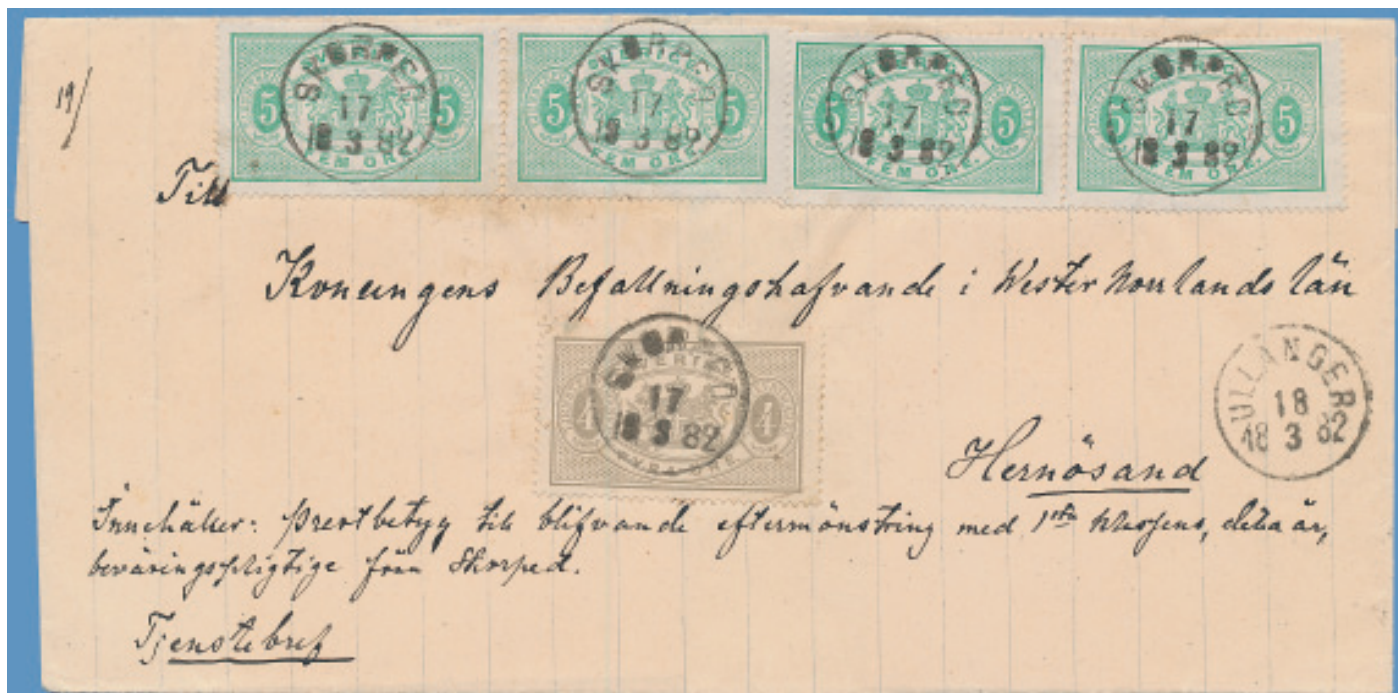 19/
5 SKORPED 17 18 3 82 5 FEM ÖRE.
5 SKORPED 17 18 3 82 5 FEM ÖRE.
5 SKORPED 17 18 3 82 5 FEM ÖRE.
5 SKORPED 17 18 3 82 5 FEM ÖRE.
Till
Konungens Befallningshafvande i Wester Norrlands län
4 SKORPED 17 18 3 82 4 FYRA ÖRE
ULLÅNGER
18
18 3 82
Hernösand
Innehåller: Prestbetyg till blifvande eftermönstring med 1sta klassens, detta år,
beväringspligtige från Skorped.
Tjenstebref